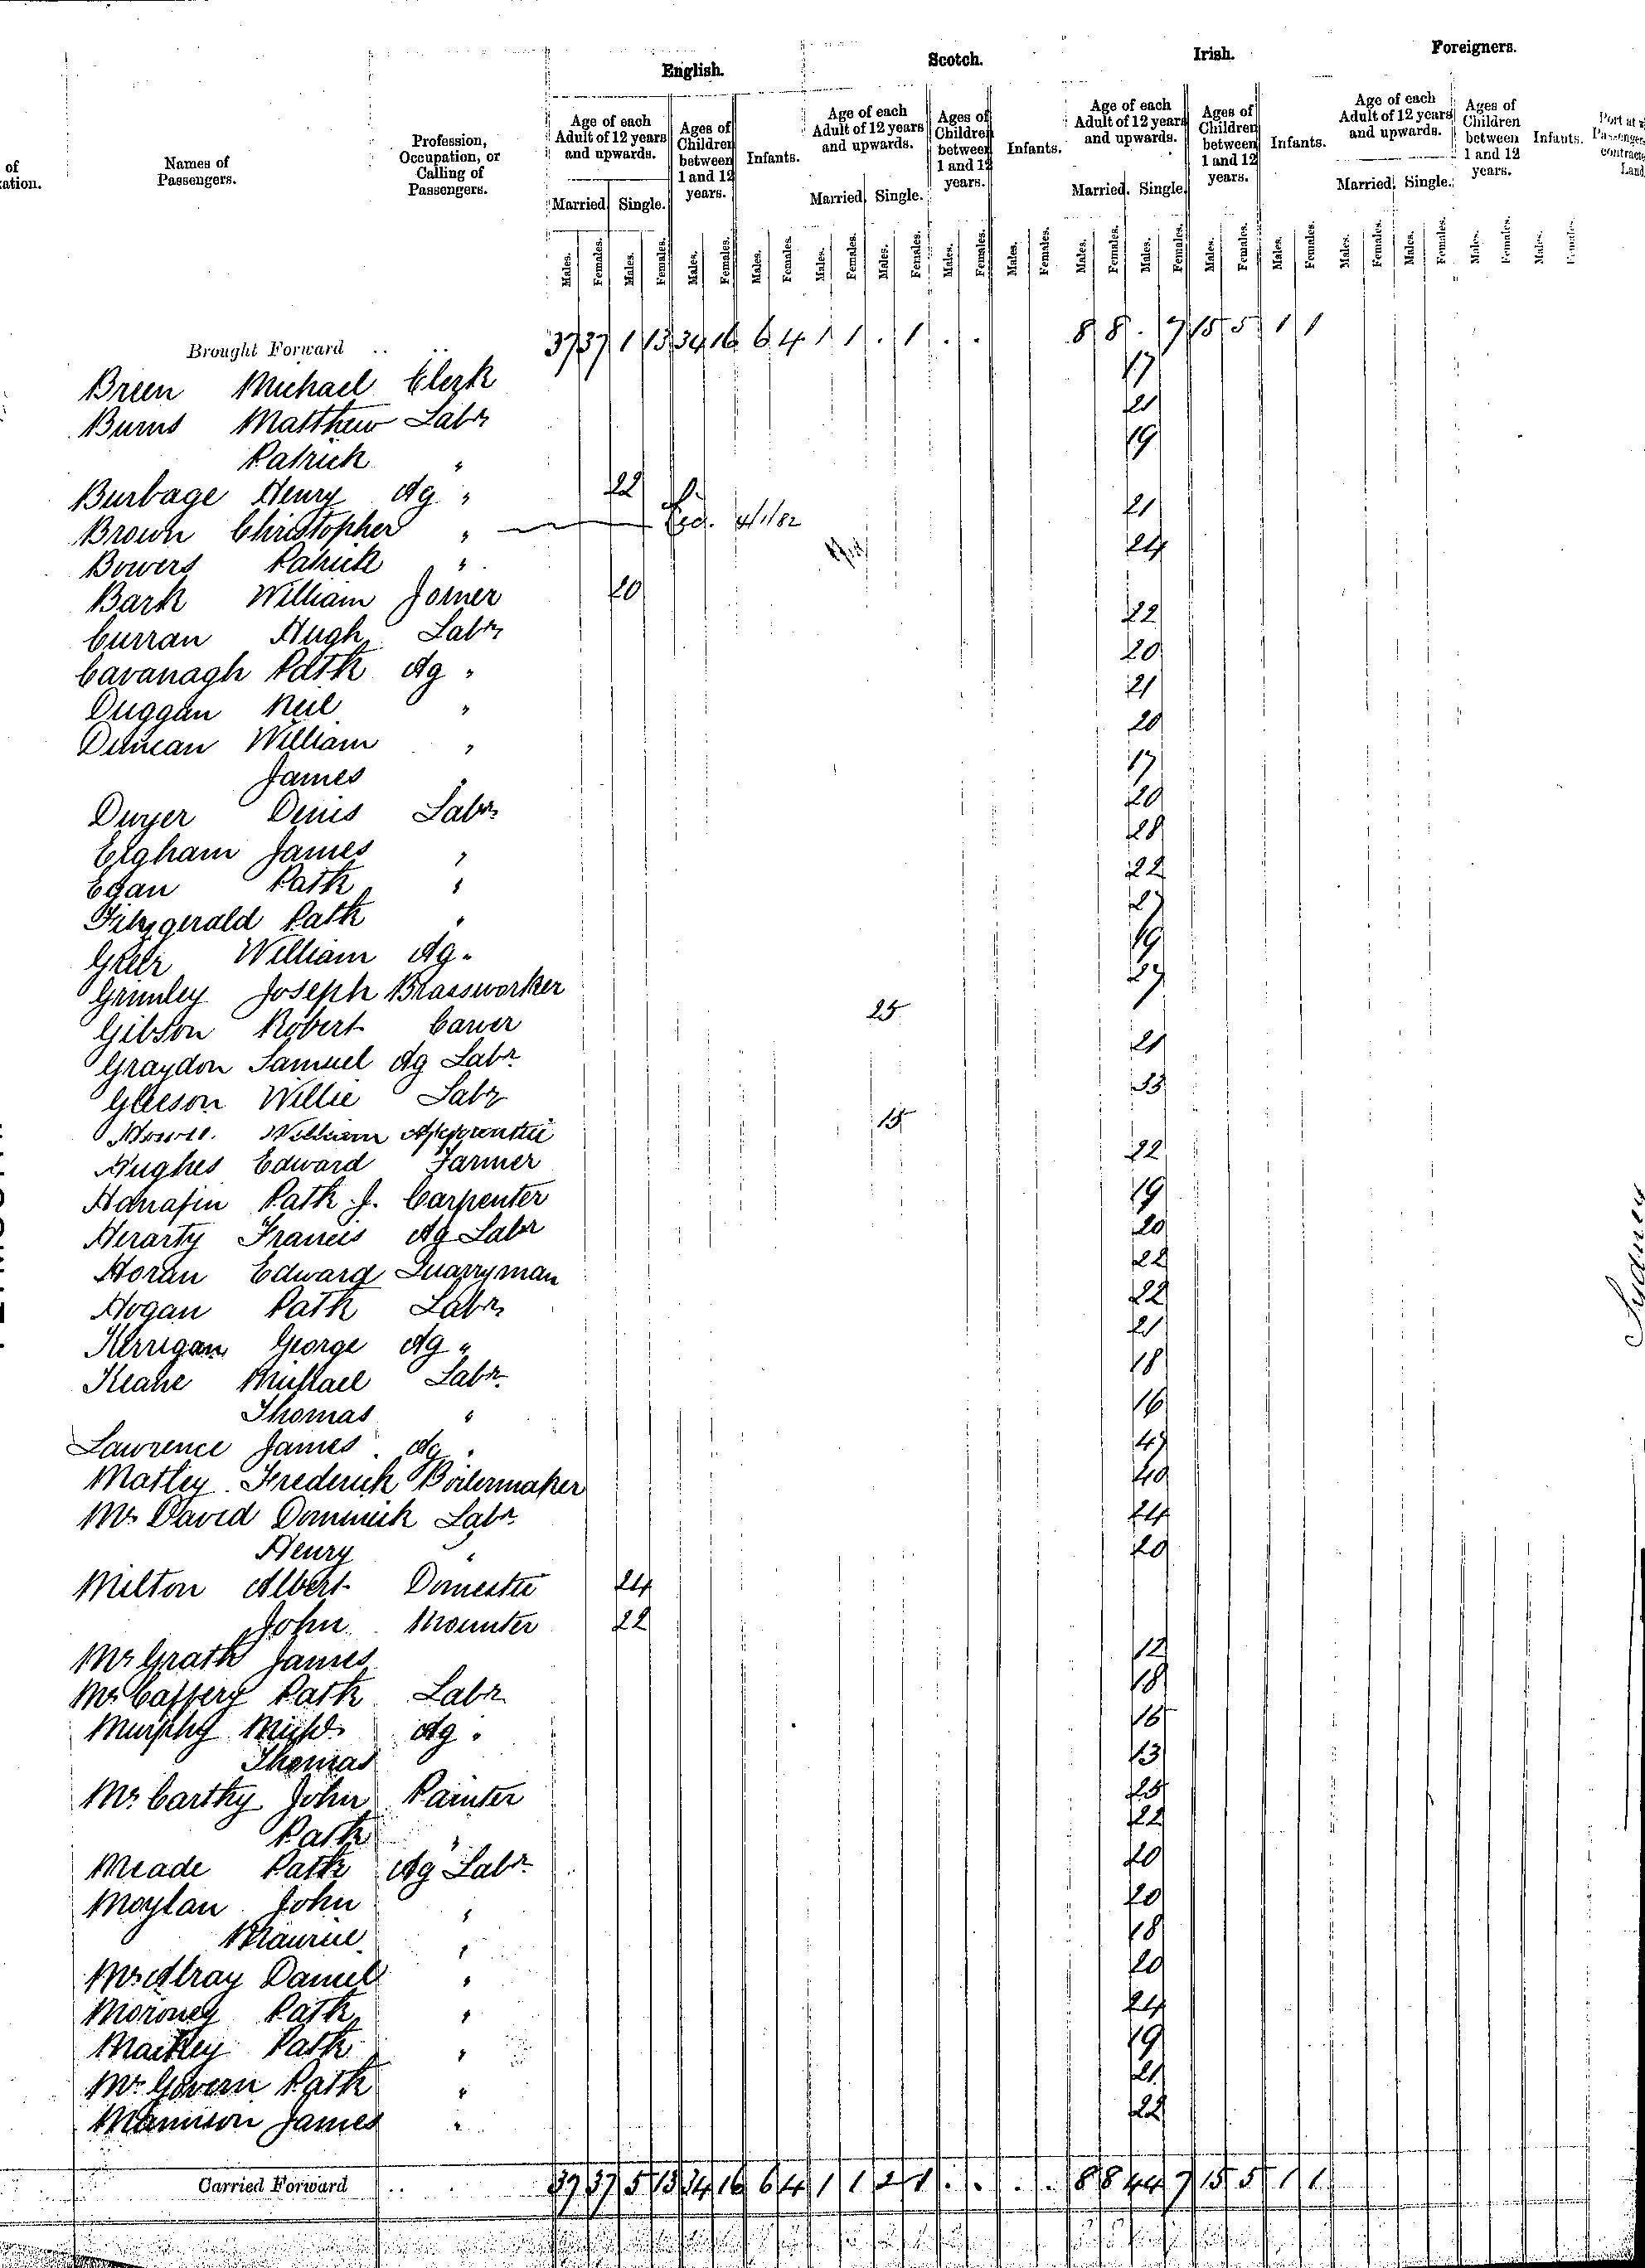 English. Scotch. Irish. Foreigners.
of
ation.
Names of
Passengers.
Profession,
Occupation, or
Calling of
Passengers.
Age of each
Adult of 12 years
and upwards.
Married. Single.
Ages of
Children
between
1 and 12
years.
Infants.
Age of each
Adult of 12 years
and upwards.
Married. Single.
Ages of
Children
between
1 and 12
years.
Infants.
Age of each
Adult of 12 years
and upwards.
Married. Single.
Ages of
Children
between
1 and 12
years.
Infants.
Age of each
Adult of 12 years
and upwards.
Married. Single.
Ages of
Children
between
1 and 12
years.
Infants.
Males. Females. Males. Females. Males. Females. Males. Females. Males. Females. Males. Females. Males. Females. Males. Females. Males. Females. Males. Females. Males. Females. Males. Females. Males. Females. Males. Females. Males. Females. Males. Females.
Brought Forward .. .. 37 37 1 13 34 16 6 4 1 1 . 1 . . 8 8 . 7 15 5 1 1
Breen Michael Clerk 17
Burns Matthew Labr 21
Patrick " 19
Burbage Henry Ag " 22
Brown Christopher " 4/1/82 21
Bowers Patrick " 24
Bark William Joiner 20
Curran Hugh Labr 22
Cavanagh Patk Ag " 20
Duggan Neil " 21
Duncan William " 20
James " 17
Dwyer Denis Labr 20
Elgham James " 28
Egan Patk " 22
Fitzgerald Patk " 27
Greer William Ag " 19
Grimley Joseph Brassworker 27
Gibson Robert Carver 25
Graydon Samuel Ag Labr 21
Gleeson Willie Labr 33
William Apprentice 15
Hughes Edward Farmer 22
Hanafin Patk J. Carpenter 19
Herarty Francis Ag Labr 20
Horan Edward Quarryman 22
Hogan Patk Labr 22
Kerrigan George Ag " 21
Keane Michael Labr 18
Thomas " 16
Lawrence James Ag " 47
Matley Frederick Boilermaker 40
Mc David Dominick Labr 24
Henry " 20
Milton Albert Domestic 24
John Mounter 22
Mc Grath James 12
Mc Caffery Patk Labr 18
Murphy Michl Ag " 16
Thomas 13
Mc Carthy John Painter 25
Patk " 22
Meade Patk Ag Labr 20
Moylan John " 20
Maurice " 18
McAlray Daniel " 20
Moroney Patk " 24
Markey Patk " 19
Mc Govern Patk " 21
Mannion James " 22
Carried Forward .. .. 37 37 5 13 34 16 6 4 1 1 2 1 . . . . 8 8 44 7 15 5 1 1